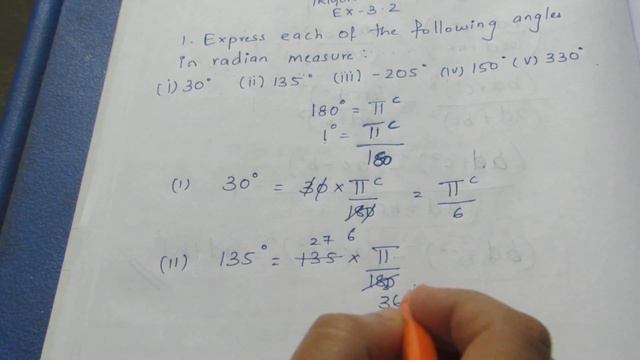 Ex-3.2
1. Express each of the following angles
in radian measure:
(i) 30° (ii) 135° (iii) -205° (iv) 150° (v) 330°
180° = π^c
1° = π^c/180
(i) 30° = 30 × π^c/180 = π^c/6
6
27
(ii) 135° = 135 × π/180
36